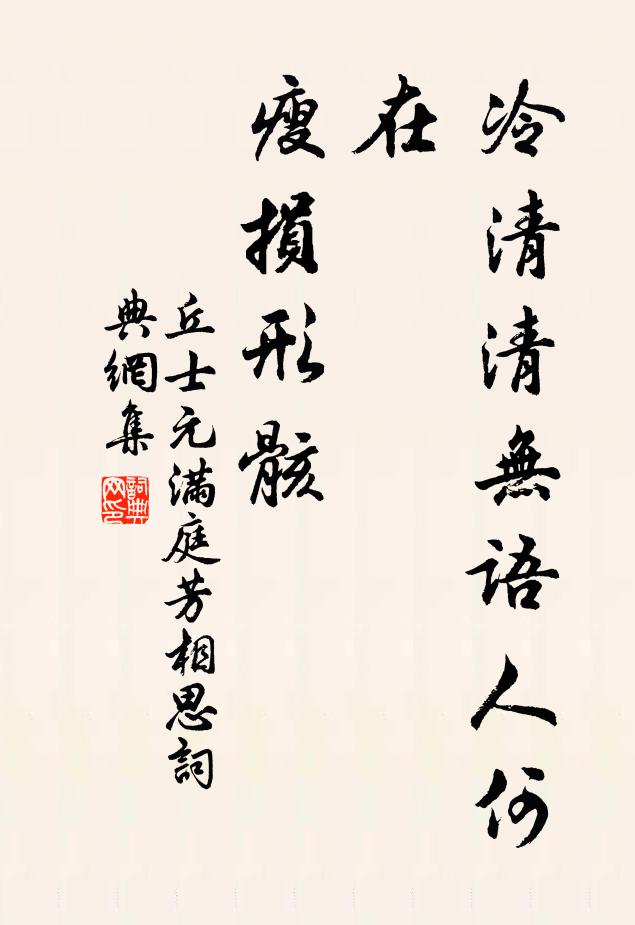 冷清清無語人何
在
瘦損形骸
丘士元滿庭芳相思詞
典網集
詞典
网印